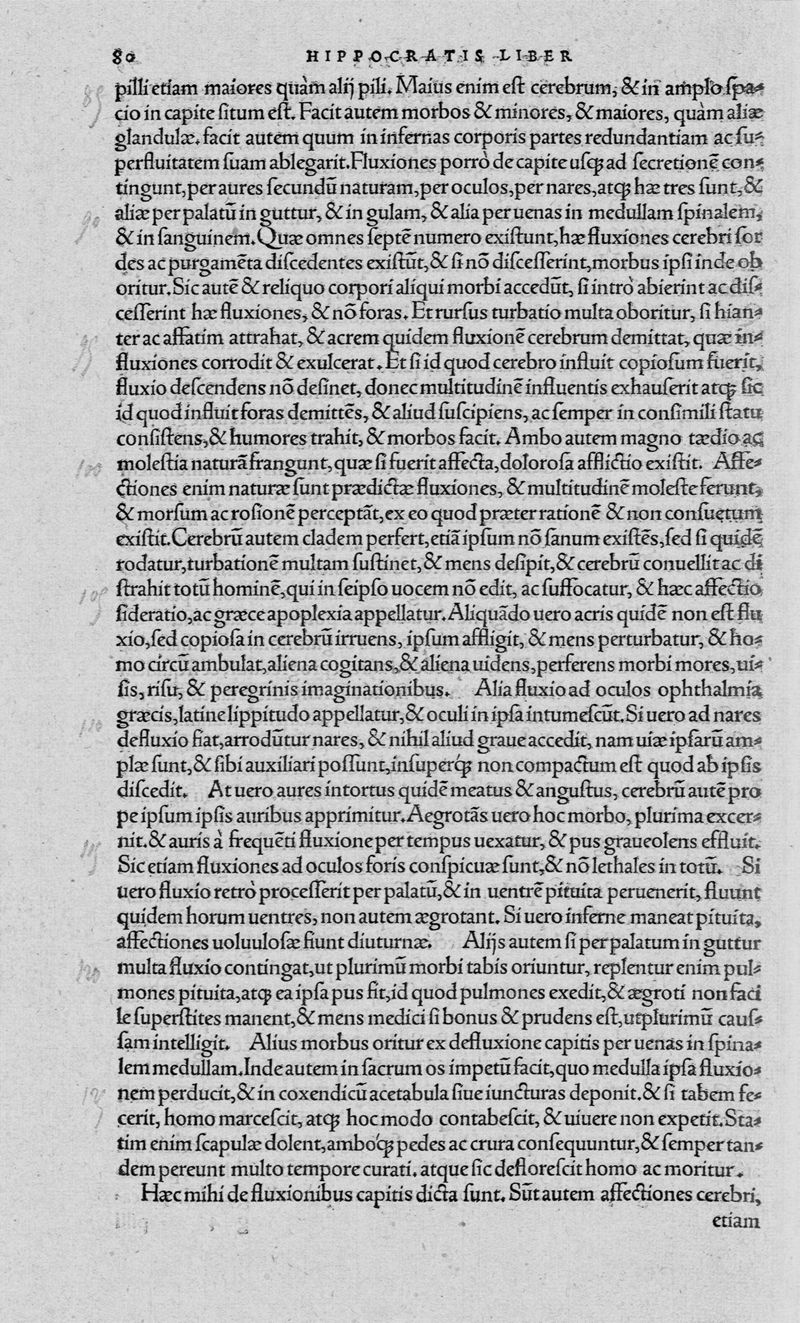 80 HIPPOCRATIS LIBER
pilli etiam maiores quàm alij pili. Maius enim eſt cerebrum, & in amplo ſpa-
cio in capite ſitum eſt. Facit autem morbos & minores, & maiores, quàm aliæ
glandulæ. facit autem quum in infernas corporis partes redundantiam ac ſu-
perfluitatem ſuam ablegarit. Fluxiones porrò de capite uſq; ad ſecretionē con-
tingunt, per aures ſecundū naturam, per oculos, per nares, atq; hæ tres ſunt, &
aliæ per palatū in guttur, & in gulam, & alia per uenas in medullam ſpinalem,
& in ſanguinem. Quæ omnes ſeptē numero exiſtunt, hæ fluxiones cerebri ſor
des ac purgamēta diſcedentes exiſtūt, & ſi nō diſceſſerint, morbus ipſi inde ob
oritur. Sic autē & reliquo corpori aliqui morbi accedūt, ſi intrò abierint ac diſ-
ceſſerint hæ fluxiones, & nō foras. Et rurſus turbatio multa oboritur, ſi hian-
ter ac affatim attrahat, & acrem quidem fluxionē cerebrum demittat, quæ in-
fluxiones corrodit & exulcerat. Et ſi id quod cerebro influit copioſum fuerit,
fluxio deſcendens nō deſinet, donec multitudinē influentis exhauſerit atq; ſic
id quod influit foras demittēs, & aliud ſuſcipiens, ac ſemper in conſimili ſtatu
conſiſtens, & humores trahit, & morbos facit. Ambo autem magno tædio ac
moleſtia naturā frangunt, quæ ſi fuerit affecta, doloroſa afflictio exiſtit. Affe-
ctiones enim naturæ ſunt prædictæ fluxiones, & multitudinē moleſte ferunt,
& morſum ac roſionē perceptāt, ex eo quod præter rationē & non conſuetum
exiſtit. Cerebrū autem cladem perfert, etiā ipſum nō ſanum exiſtēs, ſed ſi quidē
rodatur, turbationē multam ſuſtinet, & mens deſipit, & cerebrū conuellit ac di
ſtrahit totū hominē, qui in ſeipſo uocem nō edit, ac ſuffocatur, & hæc affectio
ſideratio, ac græce apoplexia appellatur. Aliquādo uero acris quidē non eſt flu
xio, ſed copioſa in cerebrū irruens, ipſum affligit, & mens perturbatur, & ho-
mo circū ambulat, aliena cogitans, & aliena uidens, perferens morbi mores, ui-
ſis, riſu, & peregrinis imaginationibus. Alia fluxio ad oculos ophthalmia
græcis, latine lippitudo appellatur, & oculi in ipſa intumeſcūt. Si uero ad nares
defluxio fiat, arrodūtur nares, & nihil aliud graue accedit, nam uiæ ipſarū am-
plæ ſunt, & ſibi auxiliari poſſunt, inſuperq; non compactum eſt quod ab ipſis
diſcedit. At uero aures intortus quidē meatus & anguſtus, cerebrū autē pro
pe ipſum ipſis auribus apprimitur. Aegrotās uero hoc morbo, plurima excer-
nit. & auris à frequēti fluxione per tempus uexatur, & pus graueolens effluit.
Sic etiam fluxiones ad oculos foris conſpicuæ ſunt, & nō lethales in totū. Si
uero fluxio retrò proceſſerit per palatū, & in uentrē pituita peruenerit, fluunt
quidem horum uentres, non autem ægrotant. Si uero inferne maneat pituita,
affectiones uoluuloſæ fiunt diuturnæ. Alijs autem ſi per palatum in guttur
multa fluxio contingat, ut plurimū morbi tabis oriuntur, replentur enim pul-
mones pituita, atq; ea ipſa pus fit, id quod pulmones exedit, & ægroti non faci
le ſuperſtites manent, & mens medici ſi bonus & prudens eſt, utplurimū cauſ-
ſam intelligit. Alius morbus oritur ex defluxione capitis per uenas in ſpina-
lem medullam. Inde autem in ſacrum os impetū facit, quo medulla ipſa fluxio-
nem perducit, & in coxendicū acetabula ſiue iuncturas deponit. & ſi tabem fe-
cerit, homo marceſcit, atq; hoc modo contabeſcit, & uiuere non expetit. Sta-
tim enim ſcapulæ dolent, amboq́; pedes ac crura conſequuntur, & ſemper tan-
dem pereunt multo tempore curati. atque ſic defloreſcit homo ac moritur.
Hæc mihi de fluxionibus capitis dicta ſunt. Sūt autem affectiones cerebri,
etiam